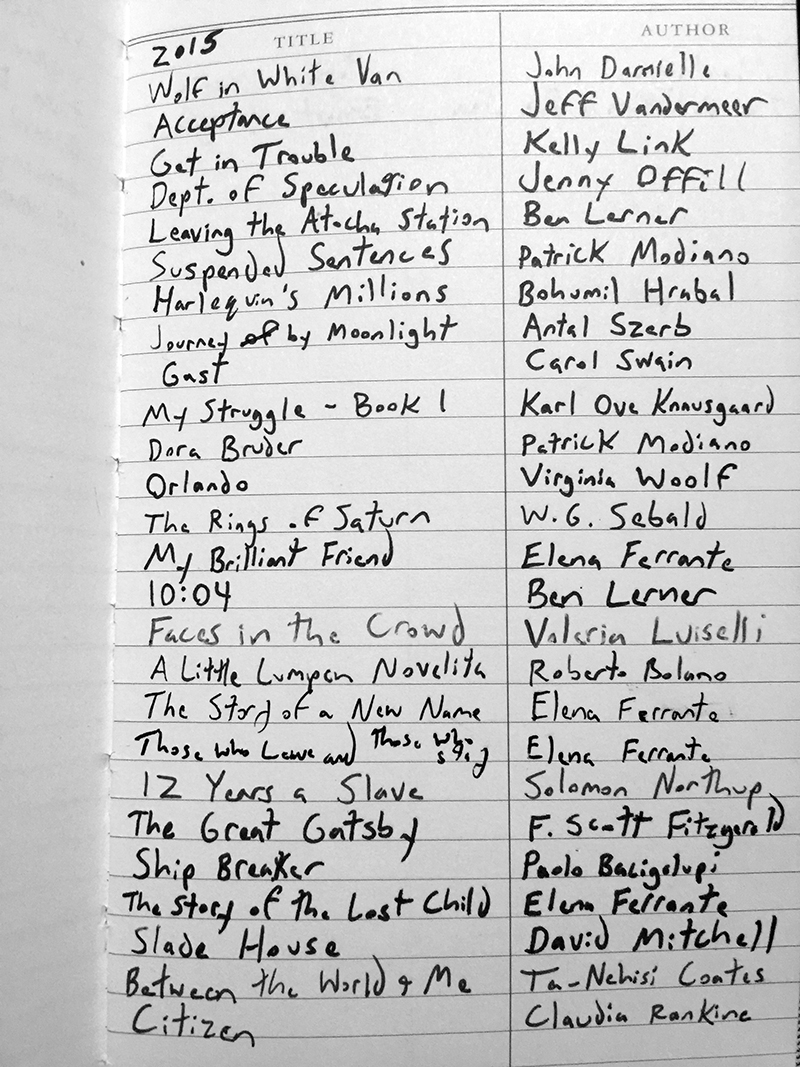 2015 TITLE AUTHOR
Wolf in White Van John Darnielle
Acceptance Jeff Vandermeer
Get in Trouble Kelly Link
Dept. of Speculation Jenny Offill
Leaving the Atocha Station Ben Lerner
Suspended Sentences Patrick Modiano
Harlequin's Millions Bohumil Hrabal
Journey of by Moonlight Antal Szerb
Gast Carol Swain
My Struggle - Book 1 Karl Ove Knausgaard
Dora Bruder Patrick Modiano
Orlando Virginia Woolf
The Rings of Saturn W.G. Sebald
My Brilliant Friend Elena Ferrante
10:04 Ben Lerner
Faces in the Crowd Valeria Luiselli
A Little Lumpen Novelita Roberto Bolano
The Story of a New Name Elena Ferrante
Those who Leave and Those who stay Elena Ferrante
12 Years a Slave Solomon Northup
The Great Gatsby F. Scott Fitzgerald
Ship Breaker Paolo Bacigalupi
The Story of the Lost Child Elena Ferrante
Slade House David Mitchell
Between the World & Me Ta-Nehisi Coates
Citizen Claudia Rankine